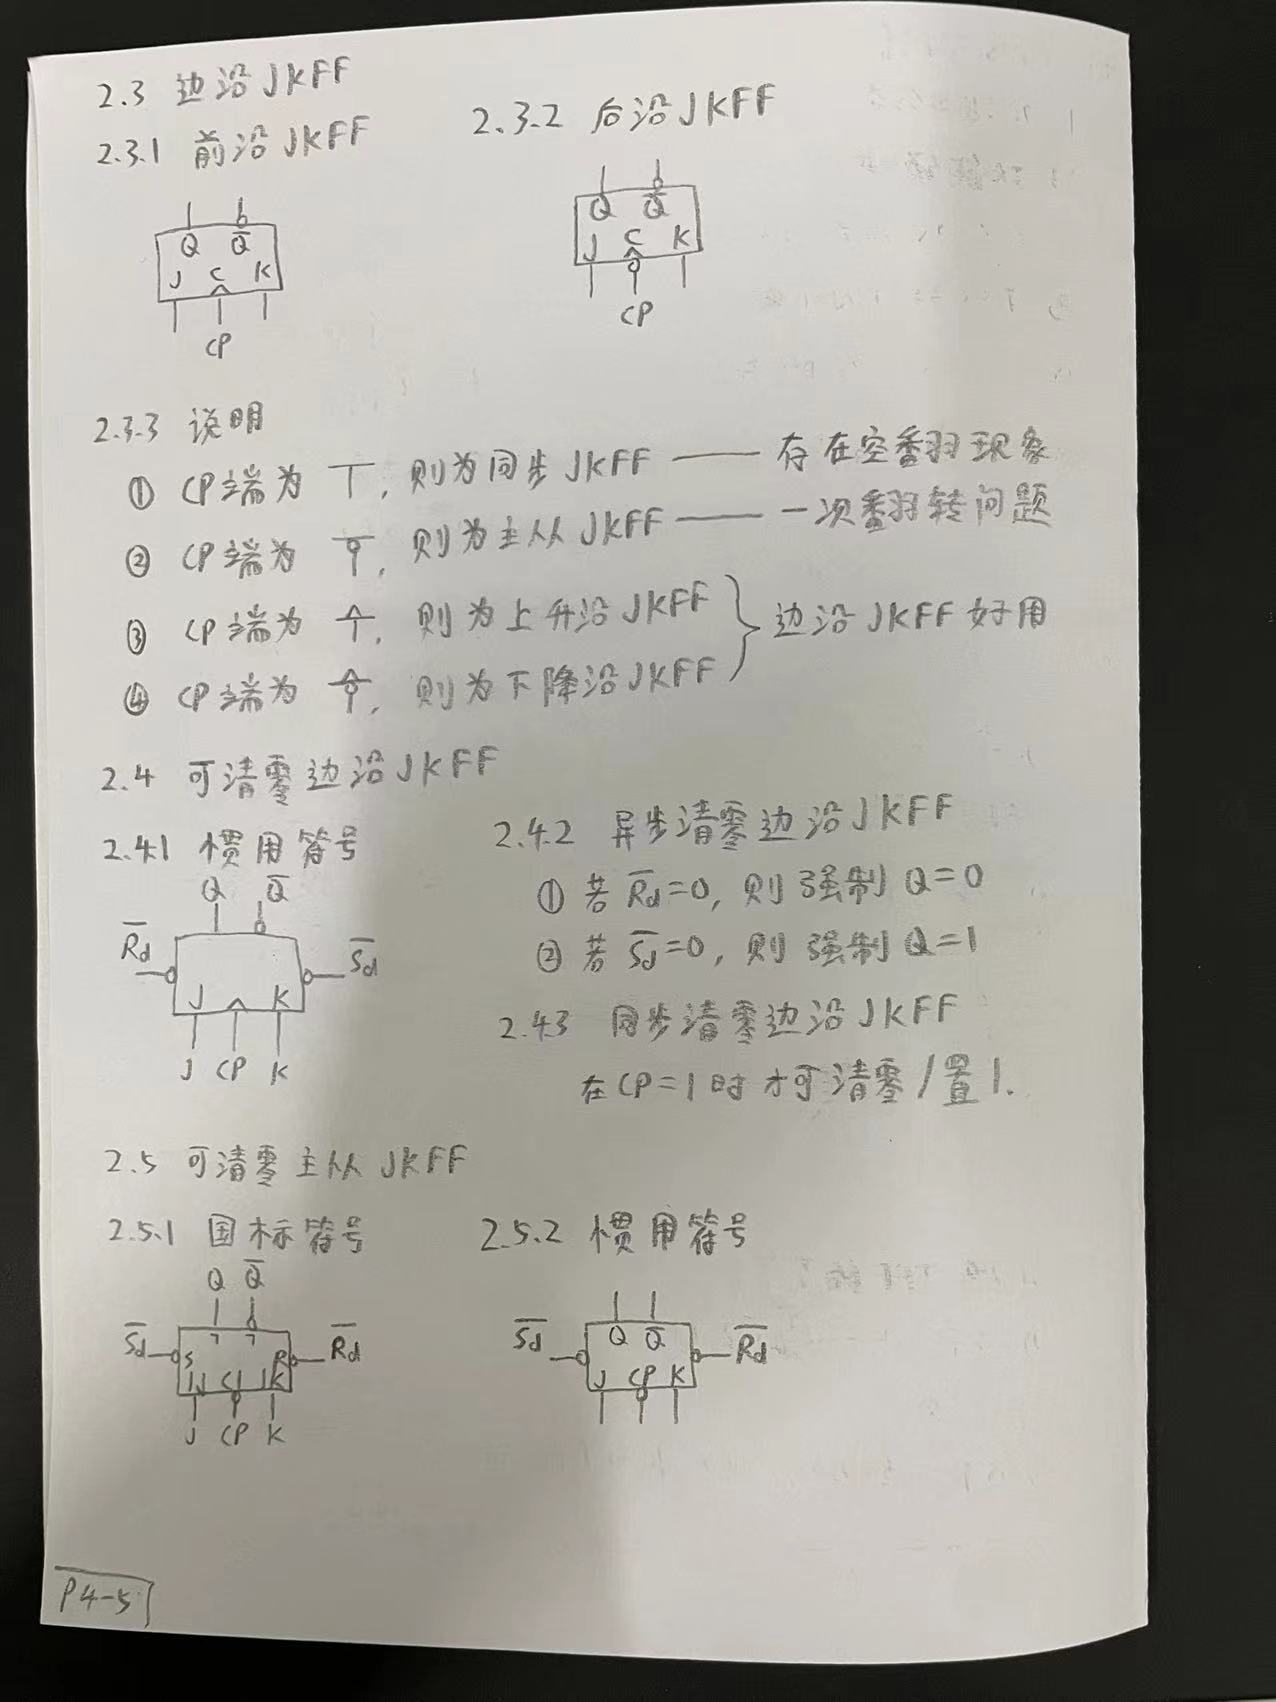 2.3 边沿JKFF
2.3.1 前沿JKFF
2.3.2 后沿JKFF
Q Q̅
J C K
CP
Q Q̅
J C K
CP
2.3.3 说明
① CP端为 , 则为同步JKFF —— 存在空翻现象
② CP端为 , 则为主从JKFF —— 一次翻转问题
③ CP端为 , 则为上升沿JKFF
④ CP端为 , 则为下降沿JKFF
边沿JKFF好用
2.4 可清零边沿JKFF
2.4.1 惯用符号
Q Q̅
R̅d̅ S̅d̅
J K
J CP K
2.4.2 异步清零边沿JKFF
① 若R̅d̅=0, 则强制Q=0
② 若S̅d̅=0, 则强制Q=1
2.4.3 同步清零边沿JKFF
在CP=1时才可清零/置1.
2.5 可清零主从JKFF
2.5.1 国标符号
Q Q̅
S̅d̅ S R R̅d̅
1J C1 1K
J CP K
2.5.2 惯用符号
Q Q̅
S̅d̅ R̅d̅
J CP K
P4-5